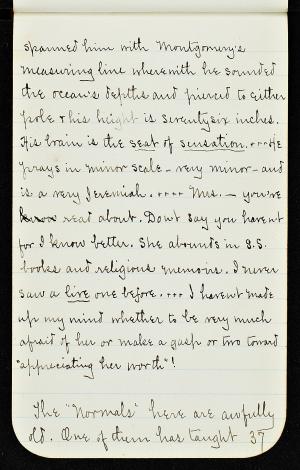 spanned him with Montgomery's
measuring line wherewith he sounded
the ocean's depths and pierced to either
pole & his height is seventysix inches.
His brain is the seat of sensation. .... He
prays in minor scale - very minor - and
is a very Jeremiah. .... Mrs. — you've
know read about. Don't say you havent
for I know better. She abounds in S.S.
books and religious memoirs. I never
saw a live one before. .... I havent made
up my mind whether to be very much
afraid of her or make a gasp or two toward
"appreciating her worth"!
The "Normals" here are awfully
old. One of them has taught 37